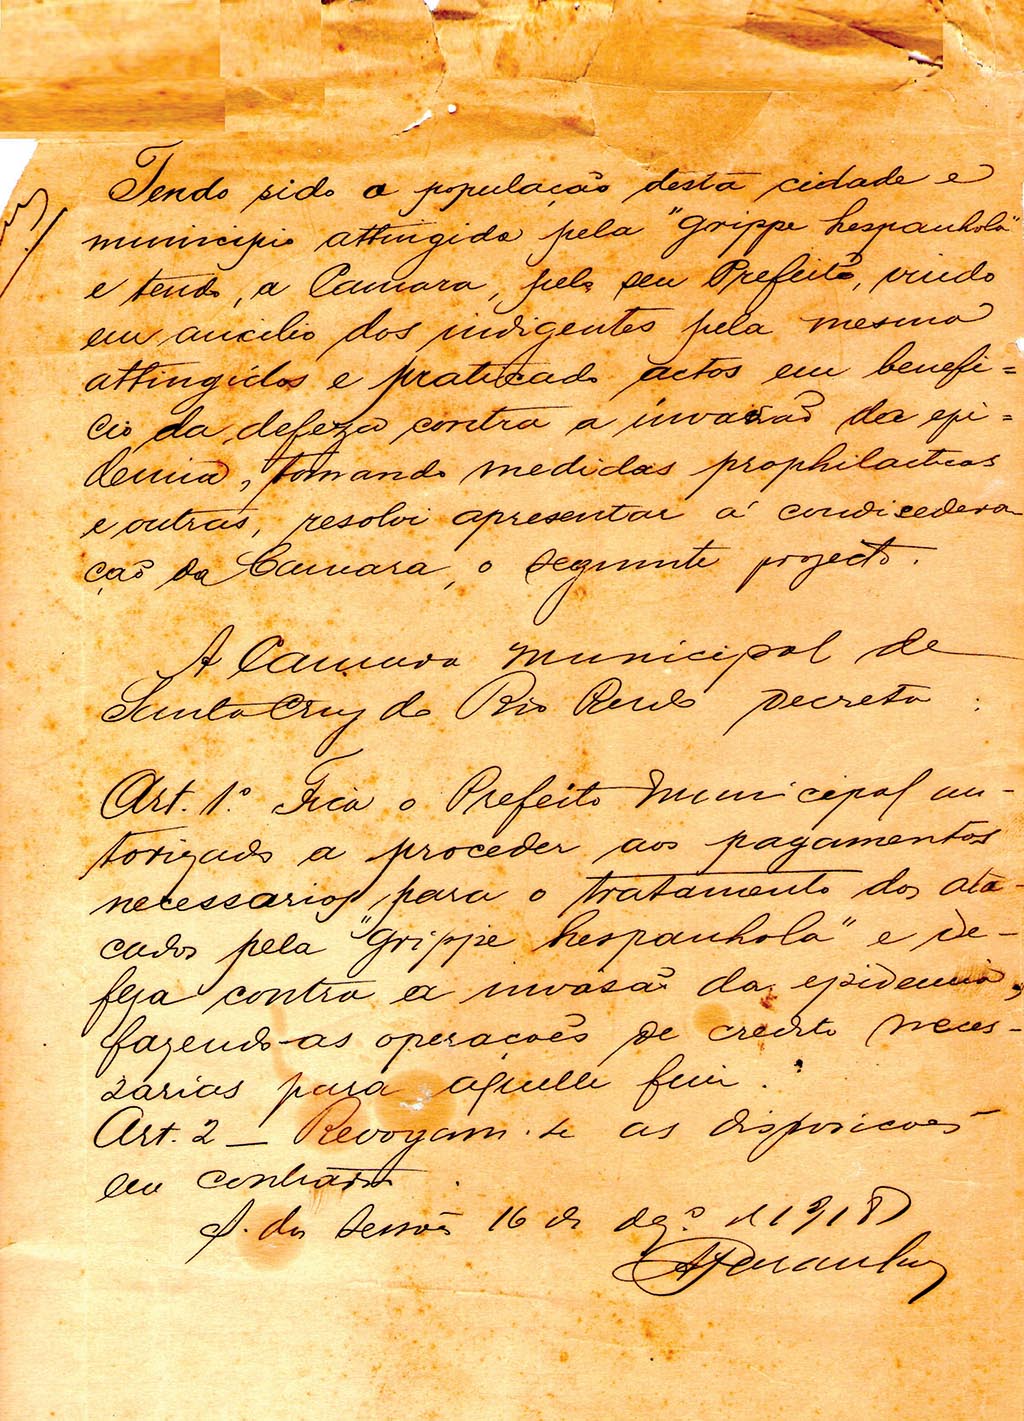 Tendo sido a população desta cidade e
municipio attingida pela "grippe hespanhola"
e tendo, a Camara, pelo seu Prefeito, vindo
em aucilio dos indigentes pela mesma
attingidos e praticado actos em benefi=
cio da defeza contra a invasão da epi=
demia, tomando medidas prophilacticas
e outras, resolvi apresentar á condicedera
ção da Camara, o seguinte projecto.
A Camara Municipal de
Santa Cruz do Rio Pardo Decreta:
Art. 1.º Fica o Prefeito Municipal au-
torizado a proceder aos pagamentos
necessarios para o tratamento dos ata-
cados pela "grippe hespanhola" e de-
feza contra a invasão da epidemia,
fazendo as operacões de credito neces-
sarias para aquelle fim.
Art. 2 — Revogam-se as disposicões
em contrario.
S. das Sessões 16 de dez.º de 1918